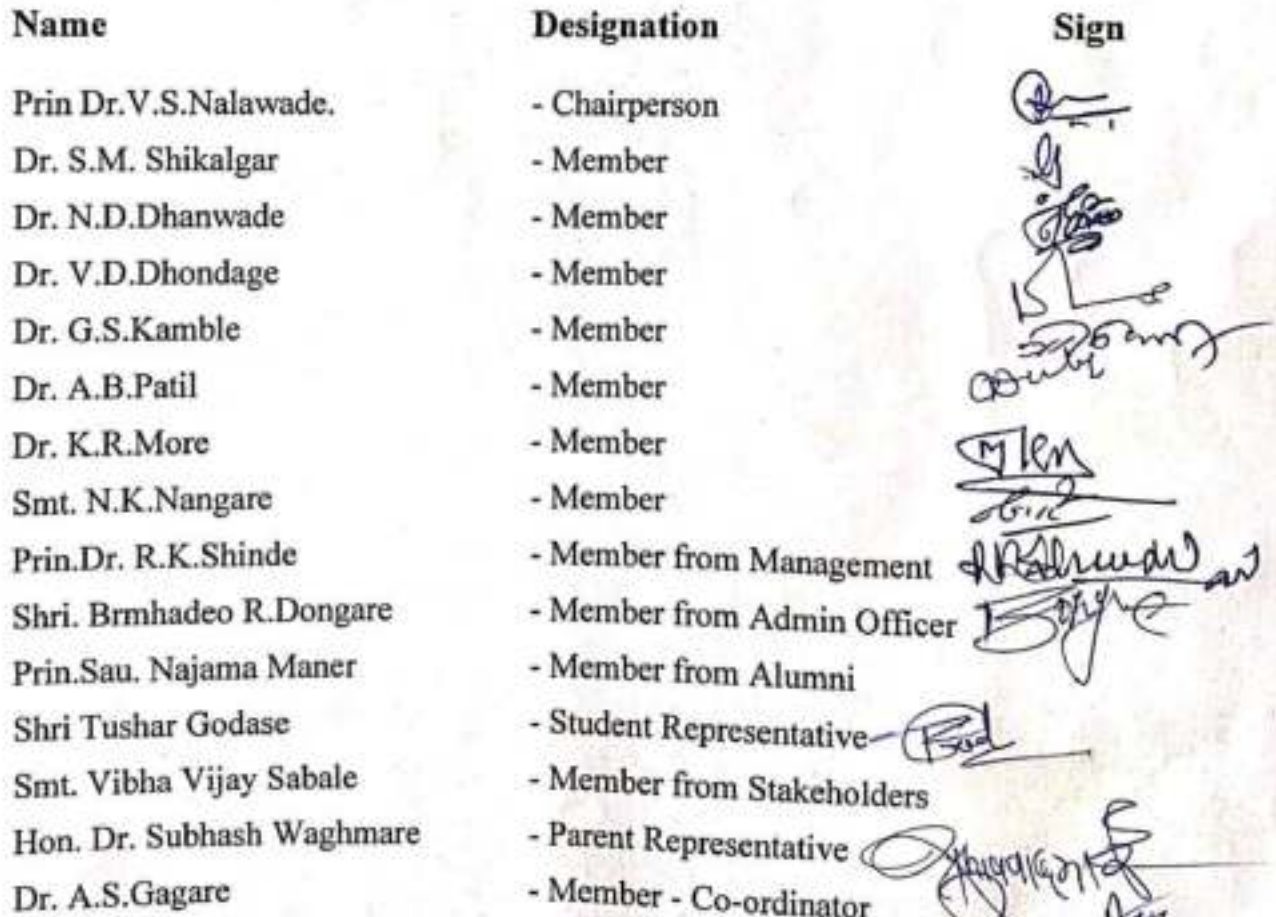 Name Designation Sign
Prin Dr.V.S.Nalawade. - Chairperson
Dr. S.M. Shikalgar - Member
Dr. N.D.Dhanwade - Member
Dr. V.D.Dhondage - Member
Dr. G.S.Kamble - Member
Dr. A.B.Patil - Member
Dr. K.R.More - Member
Smt. N.K.Nangare - Member
Prin.Dr. R.K.Shinde - Member from Management
Shri. Brmhadeo R.Dongare - Member from Admin Officer
Prin.Sau. Najama Maner - Member from Alumni
Shri Tushar Godase - Student Representative
Smt. Vibha Vijay Sabale - Member from Stakeholders
Hon. Dr. Subhash Waghmare - Parent Representative
Dr. A.S.Gagare - Member - Co-ordinator